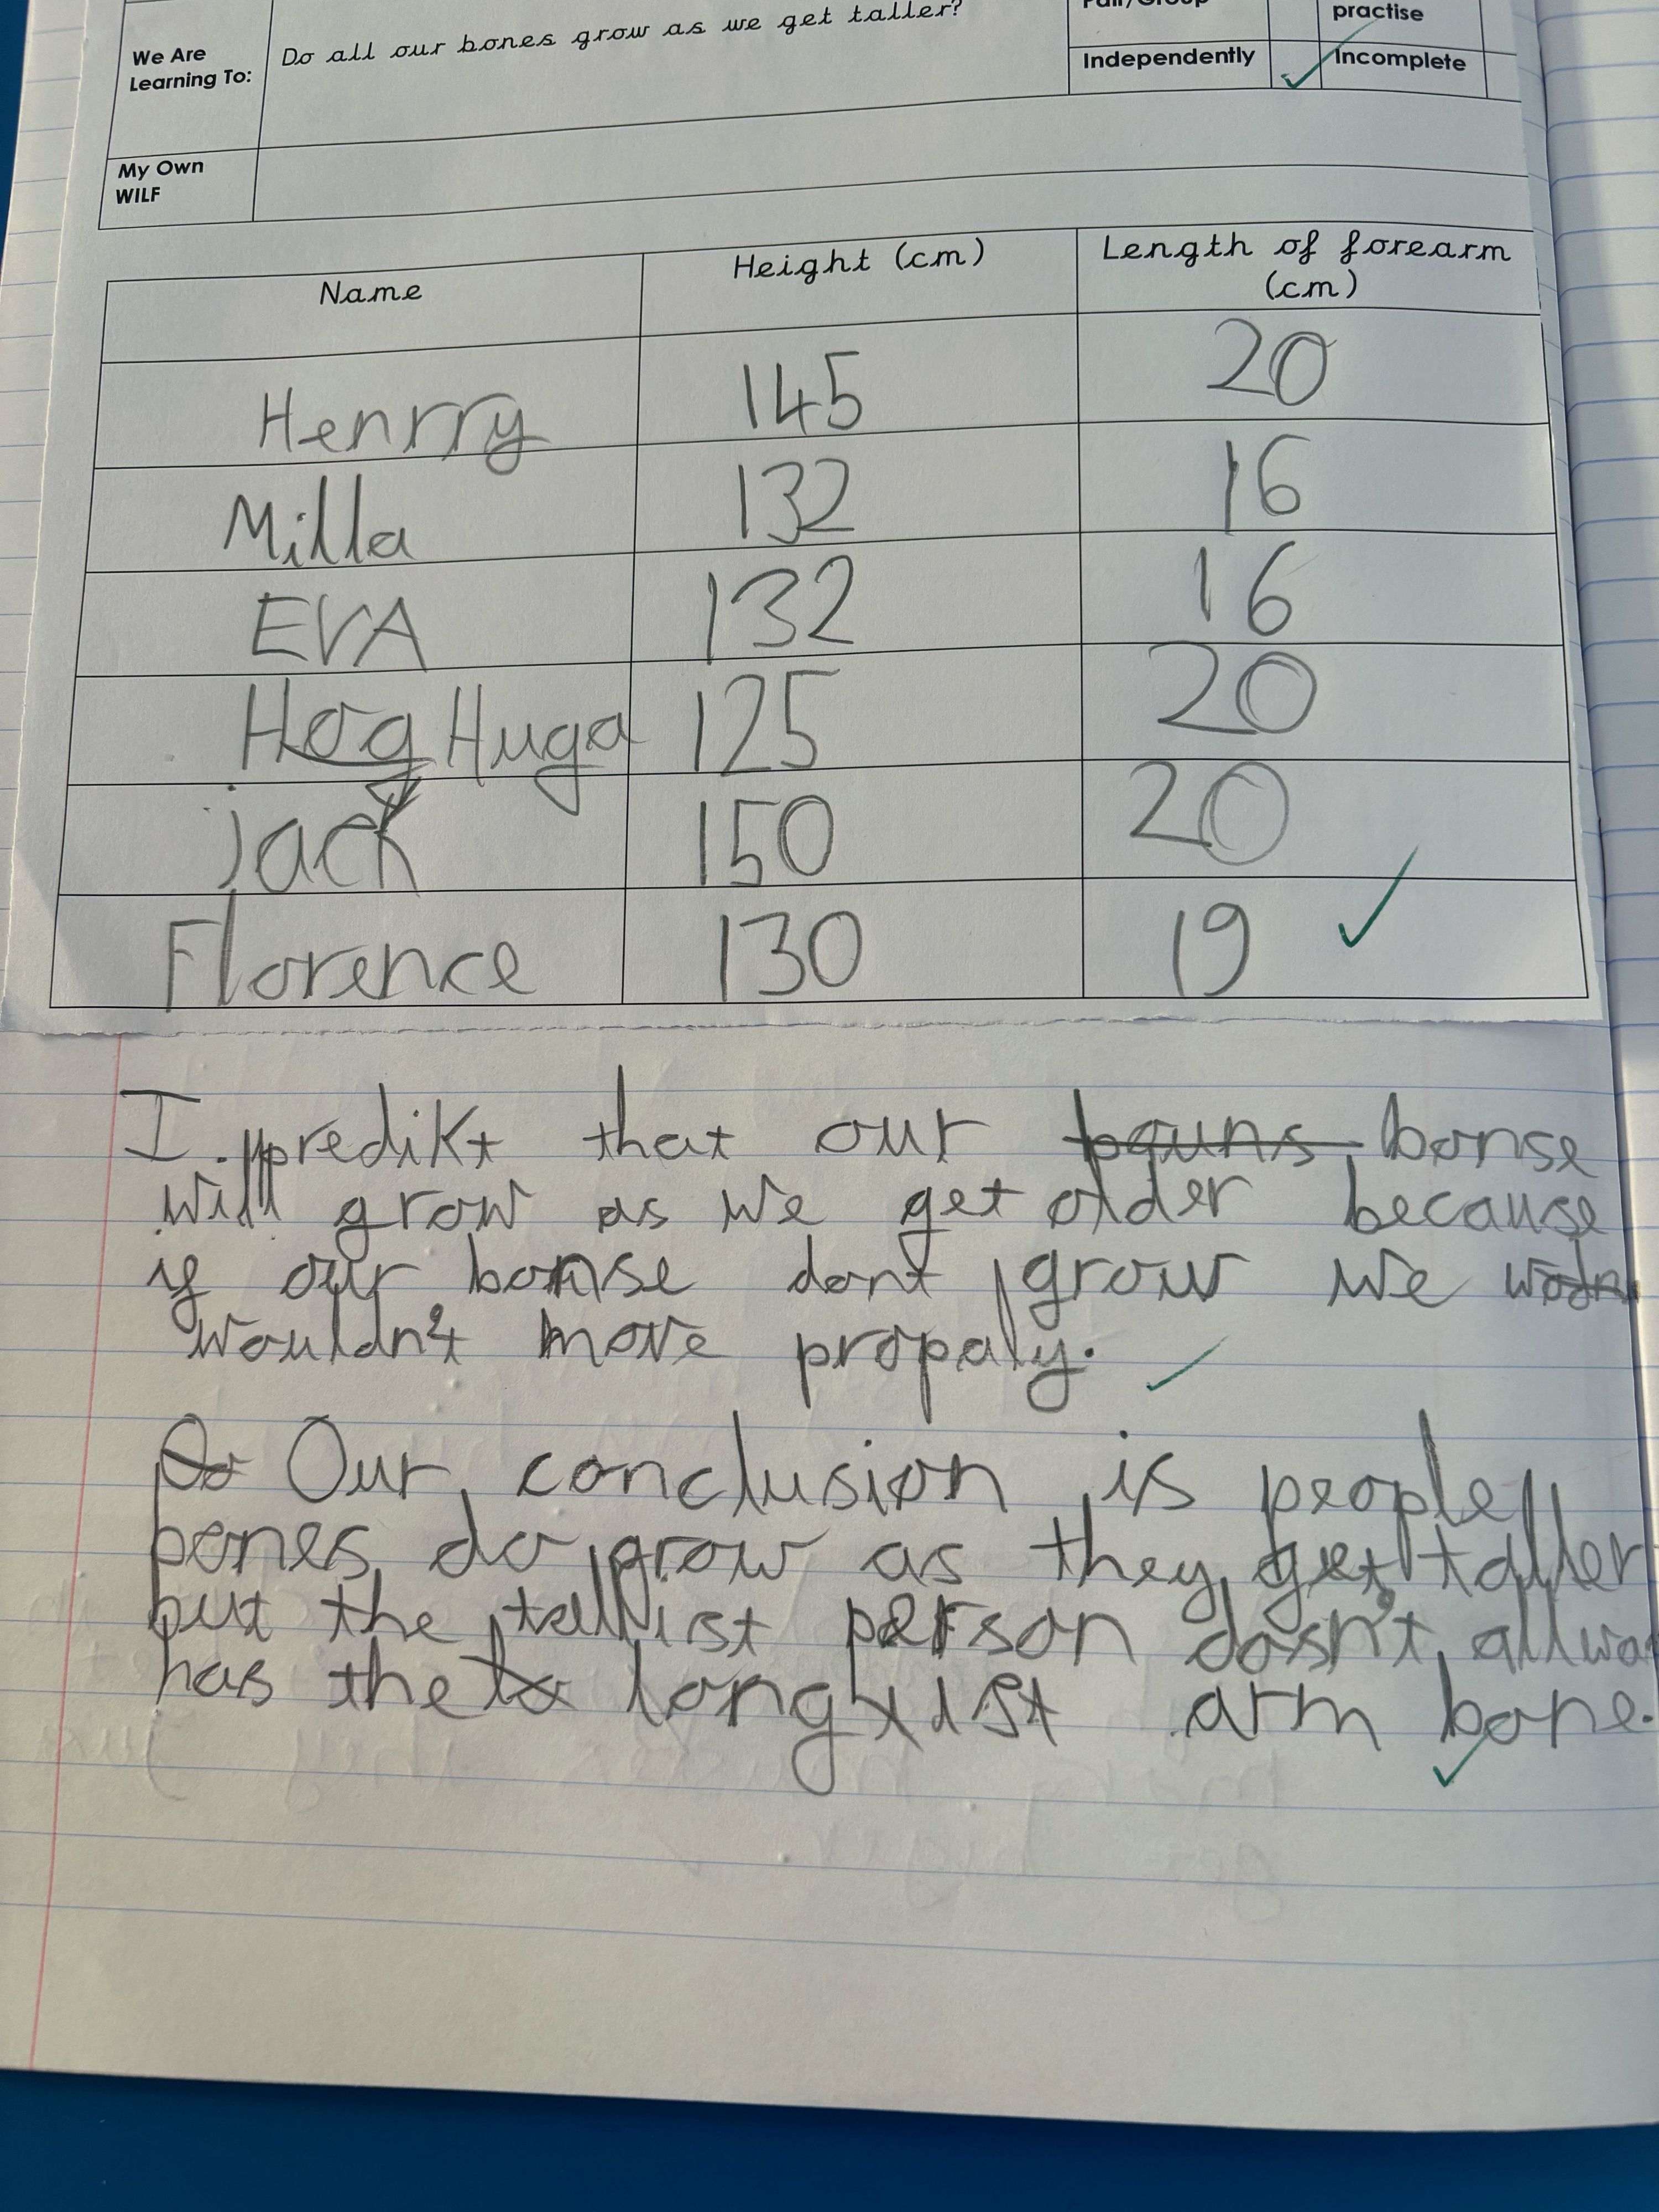 Pair/Group practise
We Are Learning To: Do all our bones grow as we get taller? Independently Incomplete
My Own WILF
Name Height (cm) Length of forearm (cm)
Henrry 145 20
Milla 132 16
EVA 132 16
Hog Huga 125 20
jack 150 20
Florence 130 19
I predikt that our bouns bonse
will grow as we get older because
if our bonse dont grow we
wouldn't move propaly.
Do Our conclusion is people
bones do grow as they get taller
but the tallist person dosn't allwa
has the longist arm bone.